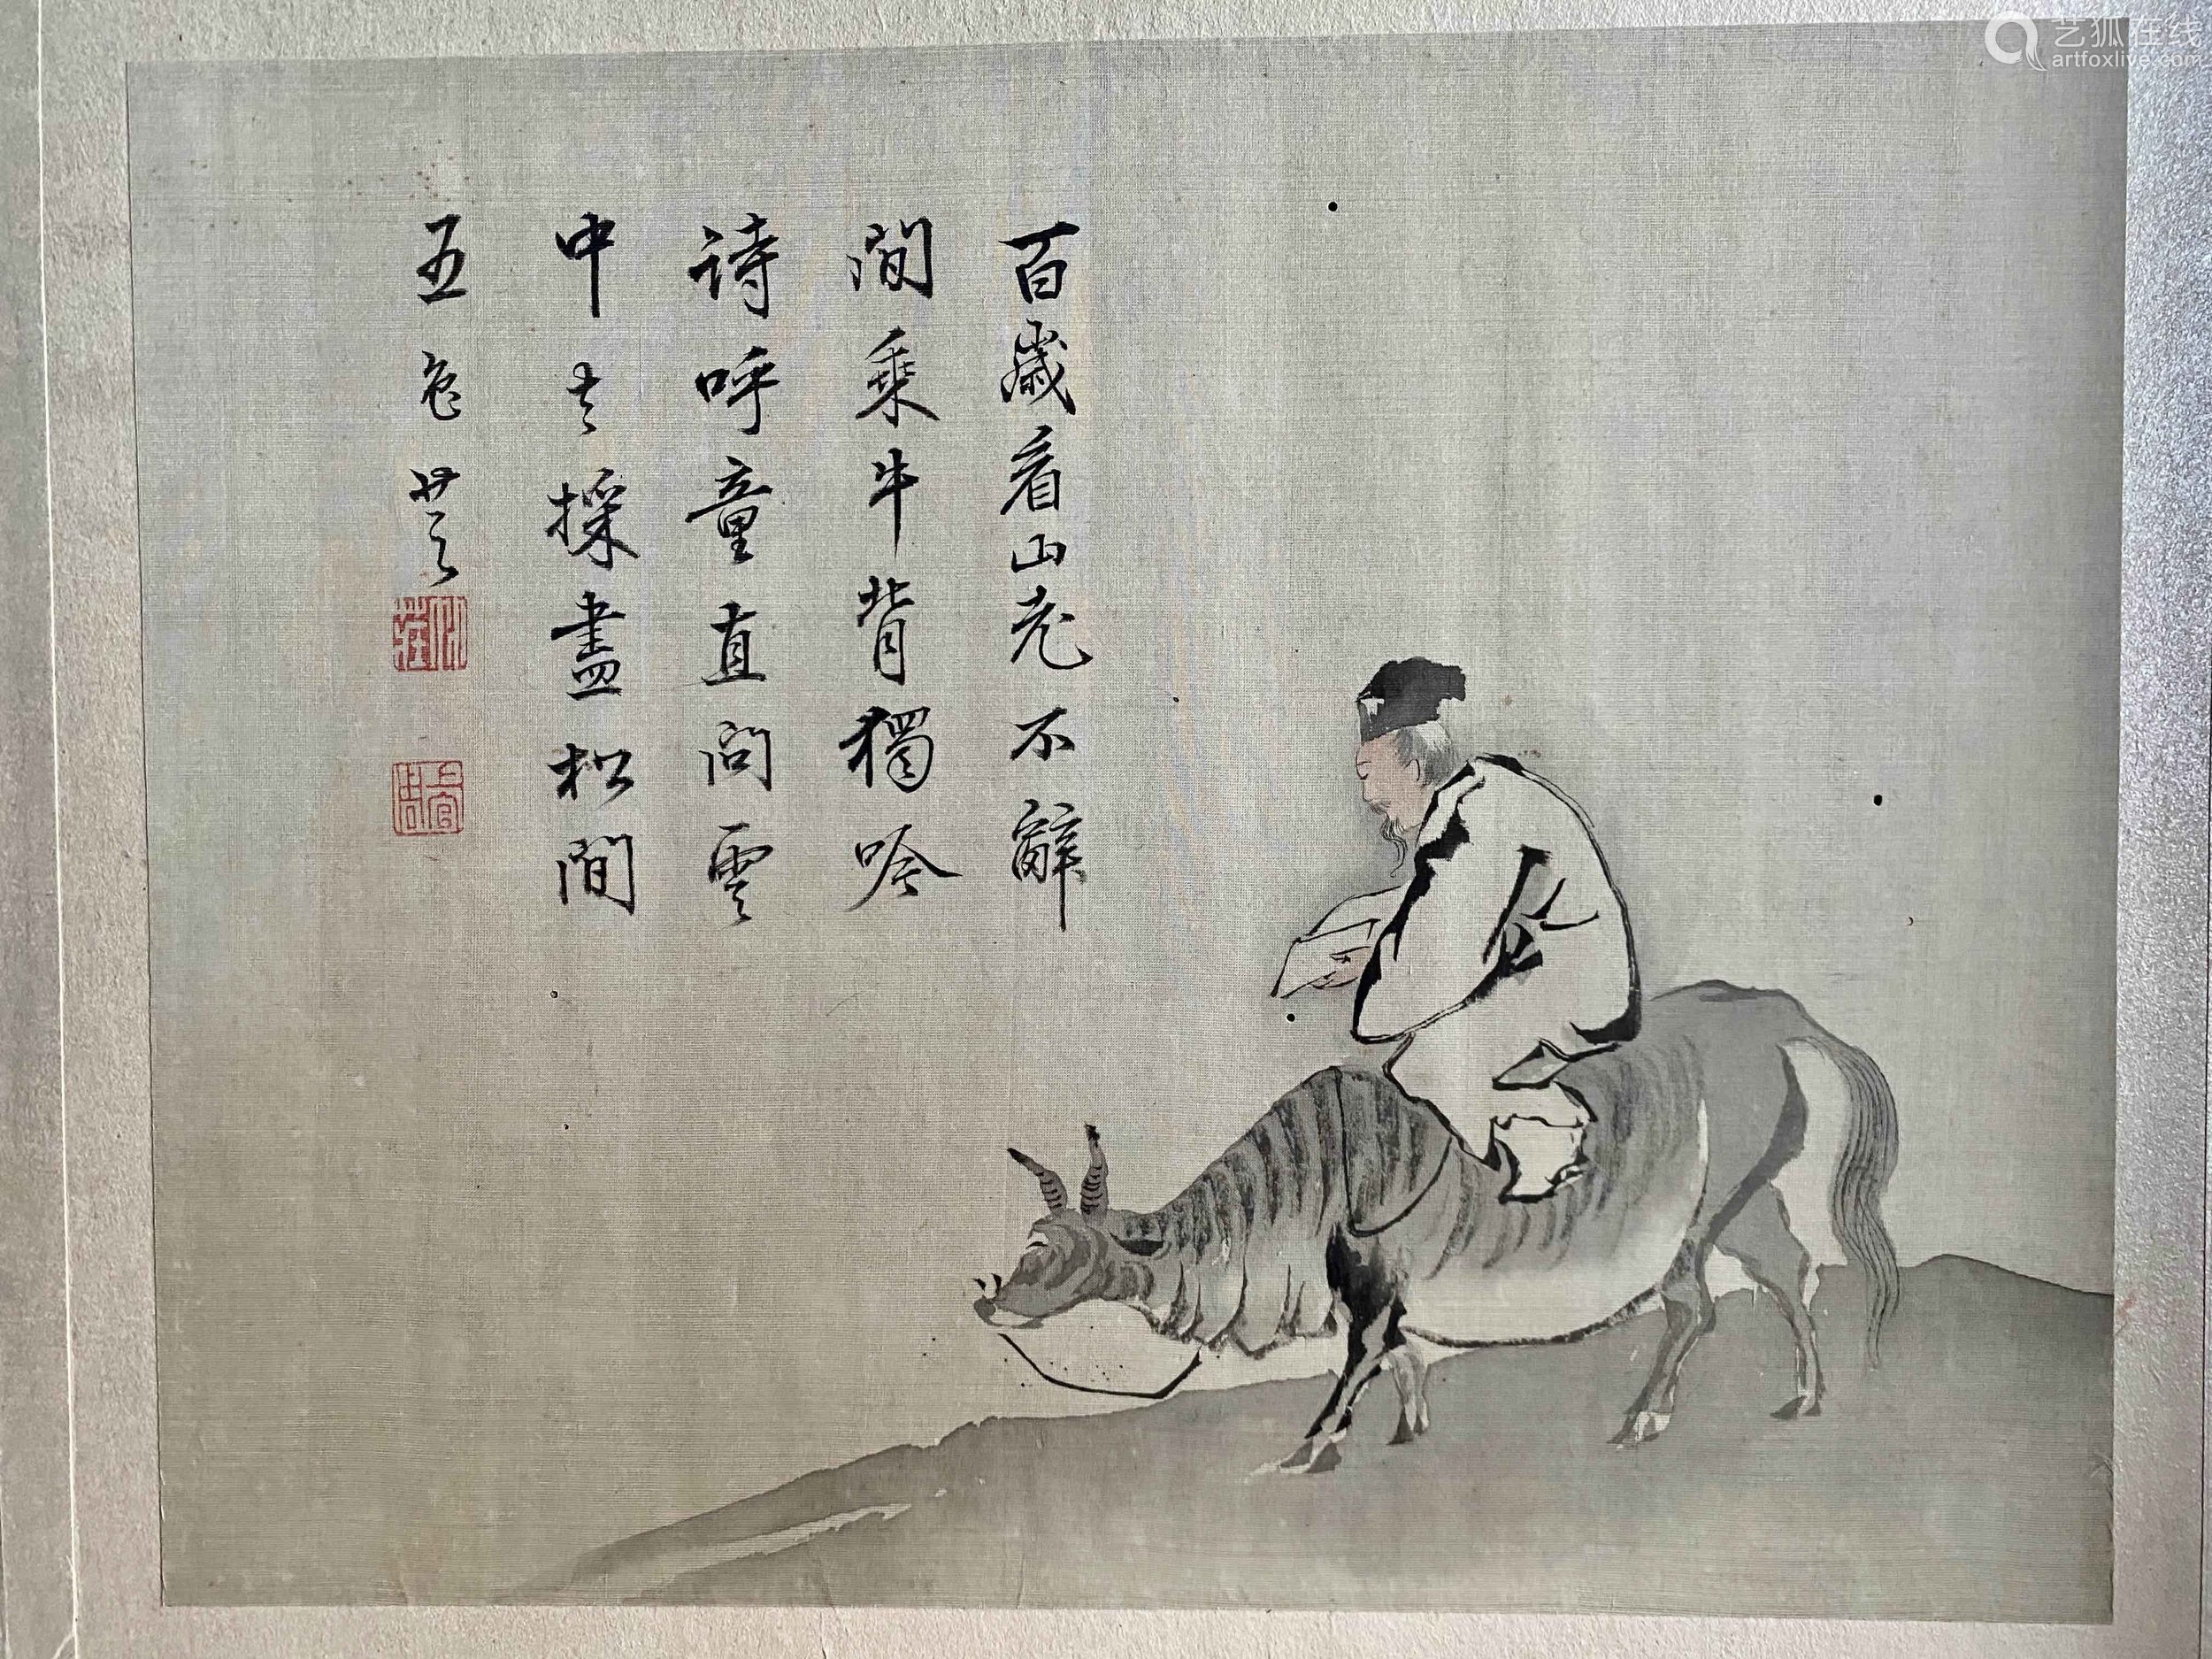 百歲看山老不辭
閒乘牛背獨吟
詩呼童直向雲
中去採盡松間
五色芝
上官周
艺狐在线
artfoxlive.com